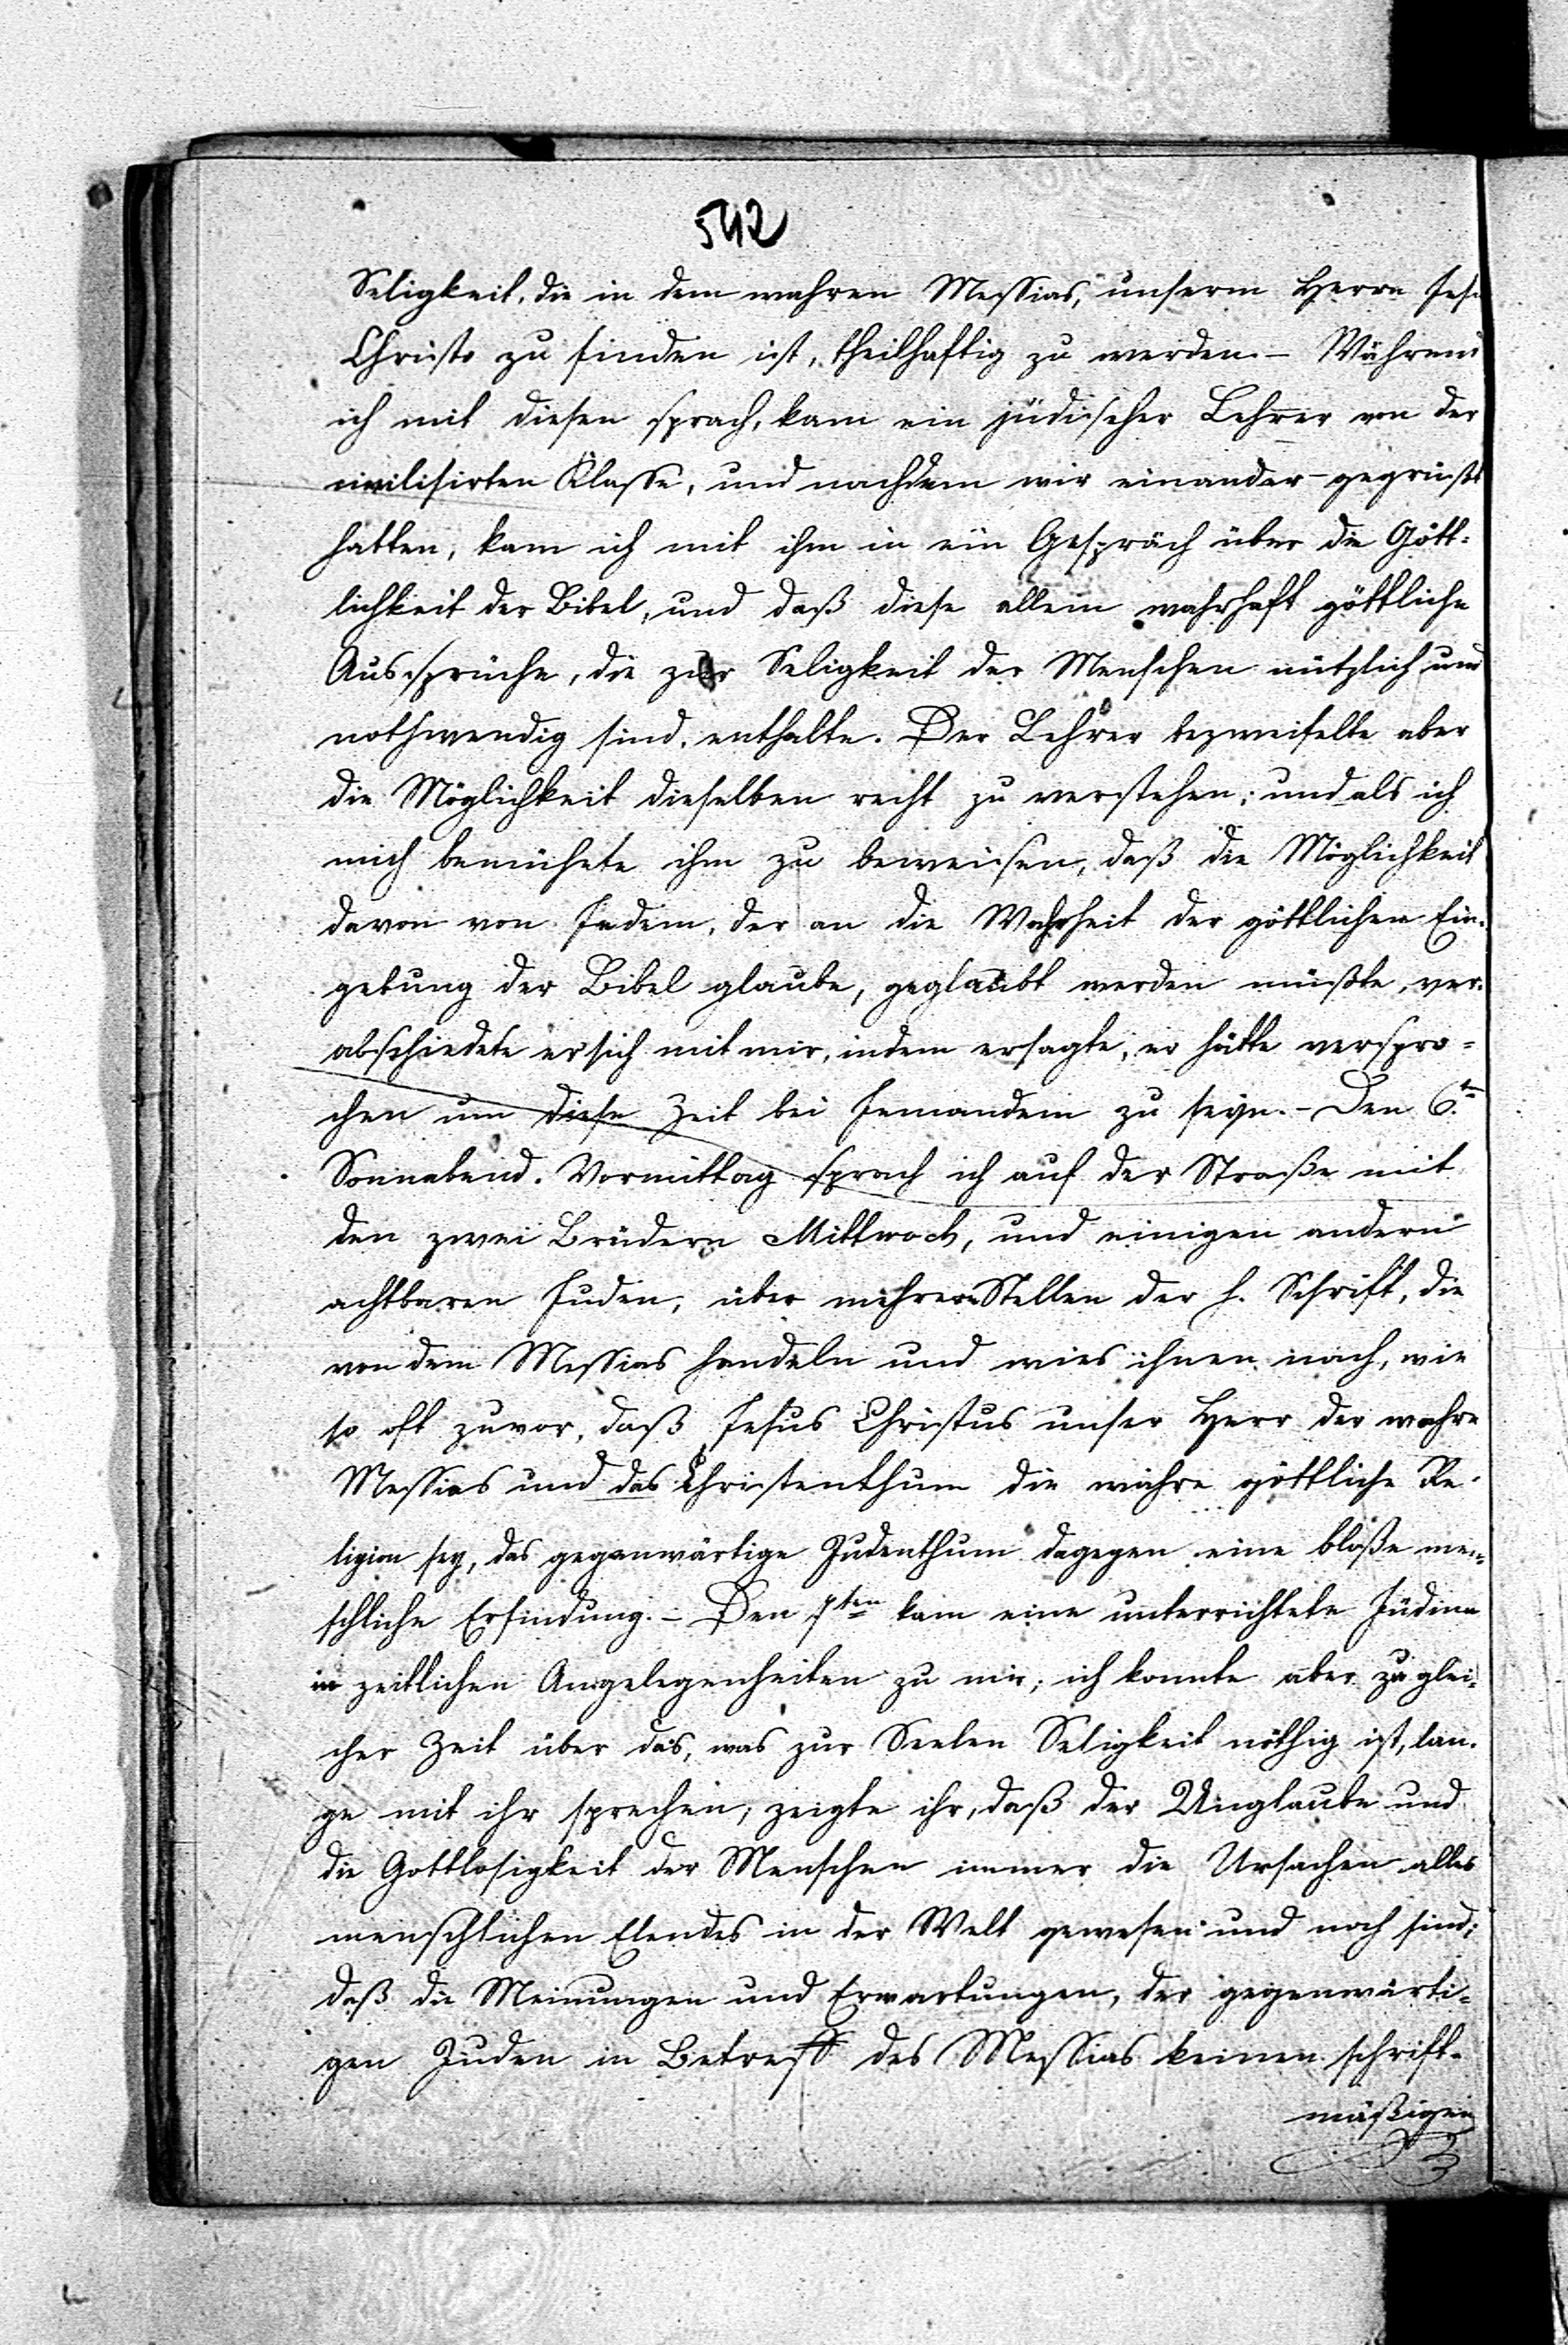 542
Seligkeit, die in dem wahren Messias, unserm Herrn Jesu
Christo zu finden ist, theilhaftig zu werden. – Während
ich mit diesen sprach, kam ein jüdischer Lehrer von der
civilisirten Klasse, und nachdem wir einander gegrüßt
hatten, kam ich mit ihm in ein Gespräch über die Gött-
lichkeit der Bibel, und daß diese allein wahrhaft göttliche
Aussprüche, die zur Seligkeit der Menschen nützlich und
nothwendig sind, enthalte. Der Lehrer bezweifelte aber
die Möglichkeit dieselben recht zu verstehen; und als ich
mich bemühete ihm zu beweisen, daß die Möglichkeit
davon von Jedem, der an die Wahrheit der göttlichen Ein-
gebung der Bibel glaube, geglaubt werden müßte, ver-
abschiedete er sich mit mir, indem er sagte, er hätte verspro-
chen um diese Zeit bei Jemandem zu seyn. – Den 6.ten
Sonnabend. Vormittag sprach ich auf der Straße mit
den zwei Brüdern Mittwoch, und einigen andern
achtbaren Juden, über mehrere Stellen der h. Schrift, die
von dem Messias handeln und wies ihnen nach, wie
so oft zuvor, daß Jesus Christus unser Herr der wahre
Messias und das Christenthum die wahre göttliche Re-
ligion sey, das gegenwärtige Judenthum dagegen eine bloße men-
schliche Erfindung. – Den 7ten kam eine unterrichtete Jüdinn
in zeitlichen Angelegenheiten zu mir; ich konnte aber zu glei-
cher Zeit über das, was zur Seelen Seligkeit nöthig ist, lan-
ge mit ihr sprechen, zeigte ihr, daß der Unglaube und
die Gottlosigkeit der Menschen immer die Ursachen alles
menschlichen Elendes in der Welt gewesen und noch sind;
daß die Meinungen und Erwartungen, der gegenwärti-
gen Juden in Betreff des Messias keinen schrift-
mäßigen